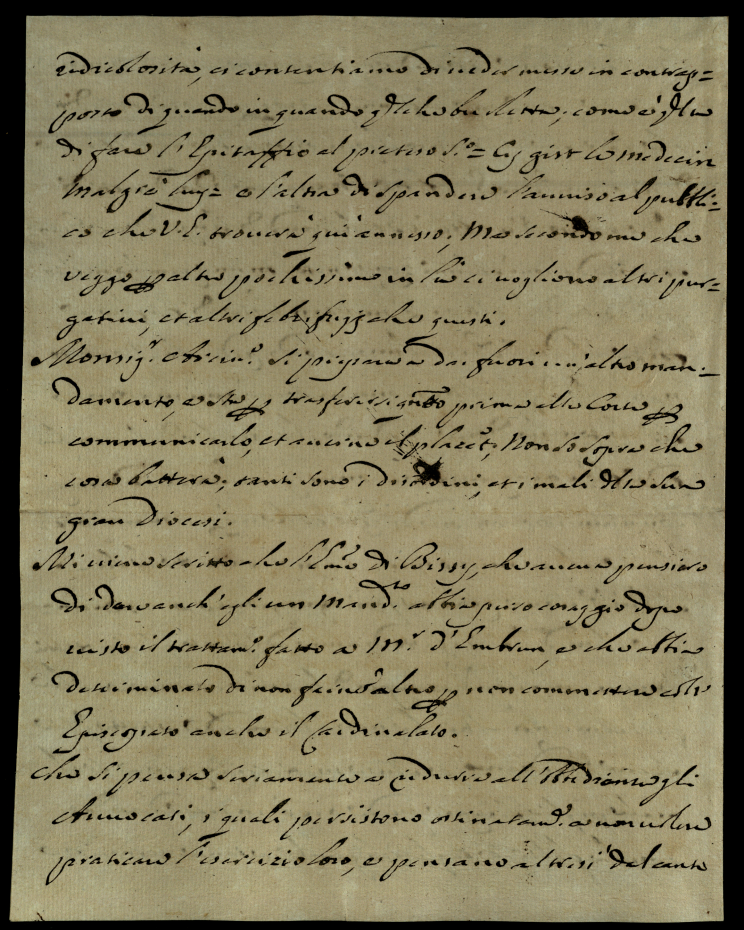 ridicolosità, ci contentiamo di veder messe in contrap=
posto di quando in quando qlche burletta; come è qlla
di fare l'Epitaffio al preteso Sto= Cy gist le medecin
malgré luy= e l'altra di spandere l'avviso al pubbli=
co che V. E. troverà quì annesso; Ma secondo me che
veggo p altro pochissimo in là ci vogliono altri pur=
gativi, et altri febrifugj che questi.
Monsigr. Arcivo. si prepara a dar fuori un'altro man=
damento, e sta p trasferirsi prima alla Corte p
communicarlo, et averne il placet; Non so sopra che
cosa batterà; tanti sono i disordini, et i mali dlla sua
gran Diocesi.
Mi viene scritto che l'Emo di Bissy, che aveva pensiero
di dare anch'egli un Mandto. abbia perso coraggio dopo
visto il trattamo. fatto a Mr. d'Embrun, e che abbia
determinato di non far altro p non commettere coll'
Episcopato anche il Cardinalato.
Che si pensa seriamente a ridurre all'Ubbidienza gli
Avvocati, i quali persistono ostinatamo. a non volere
praticare l'esercizio loro, e pensano altresì dal canto